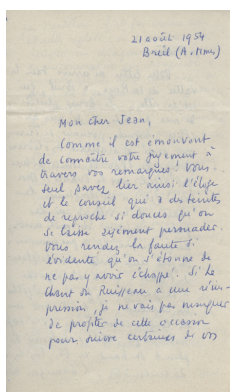 21 août 1954
Breil (A. Mmes)
Mon cher Jean,
Comme il est émouvant
de connaître votre jugement à
travers vos remarques ! Vous
seul savez lier ainsi l'éloge
et le conseil qui a des
de reproche si douces qu'on
se laisse aisément persuader.
Vous rendez la faute si
évidente qu'on s'étonne de
ne pas y avoir échappé. Si Le
Chant du Ruisseau a une réim-
pression, je ne vais pas manquer
de profiter de cette occasion
pour suivre certaines de vos